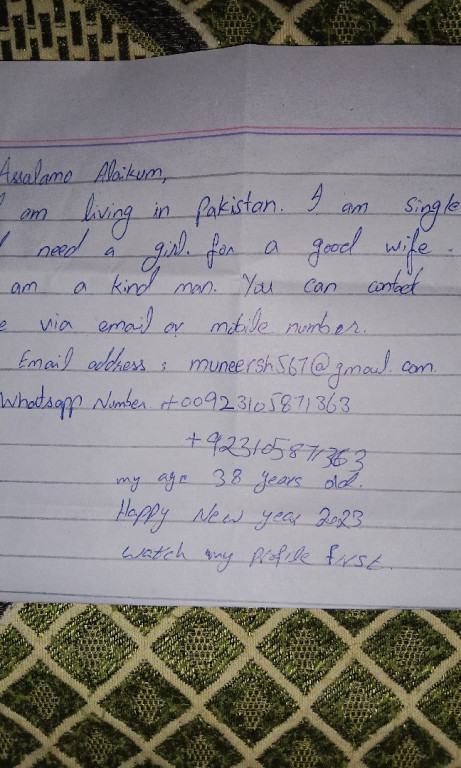 Assalamo Alaikum,
I am living in Pakistan. I am single
I need a girl. for a good wife.
am a kind man. You can contact
e via email or mobile number.
Email address : muneersh567@gmail.com
Whatsapp Number +00923105871363
+923105871363
my age 38 years old.
Happy New year 2023
watch my profile first.